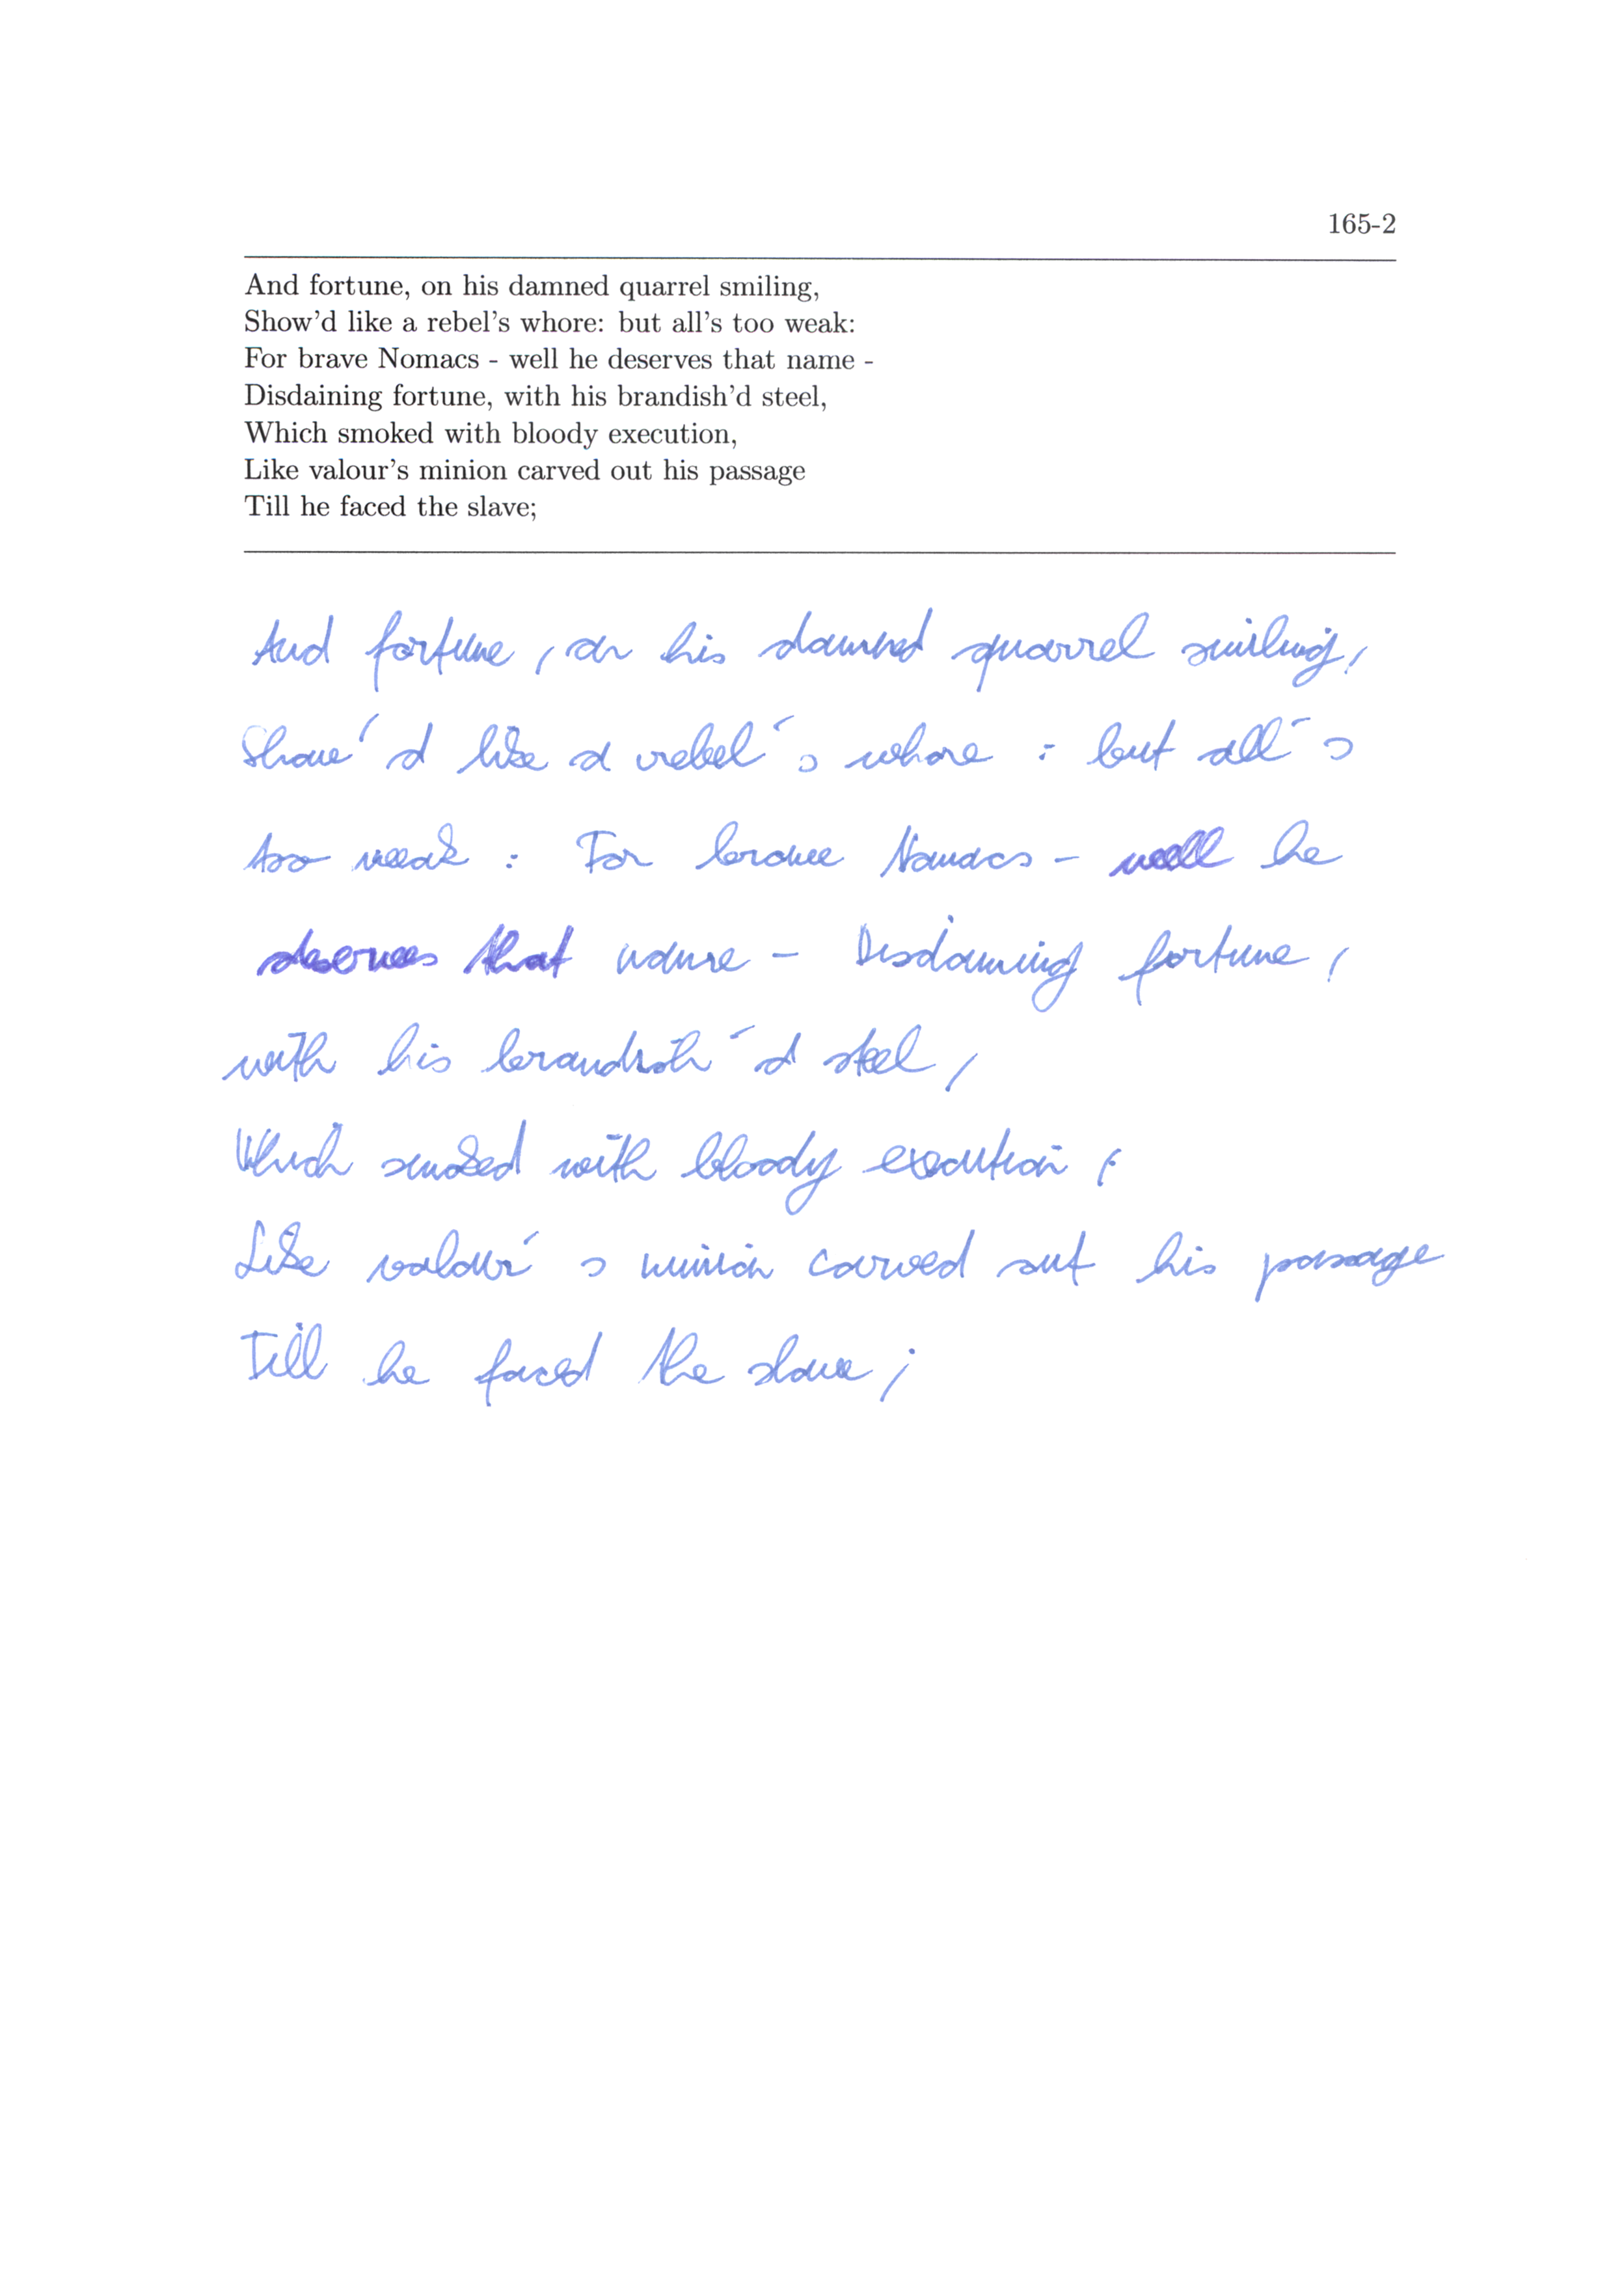 165-2
And fortune, on his damned quarrel smiling,
Show'd like a rebel's whore: but all's too weak:
For brave Nomacs - well he deserves that name -
Disdaining fortune, with his brandish'd steel,
Which smoked with bloody execution,
Like valour's minion carved out his passage
Till he faced the slave;
And fortune, on his damned quarrel smiling,
Show'd like a rebel's whore: but all's
too weak: For brave Nomacs - well he
deserves that name - Disdaining fortune,
with his brandish'd steel,
Which smoked with bloody execution,
Like valour's minion carved out his passage
Till he faced the slave;